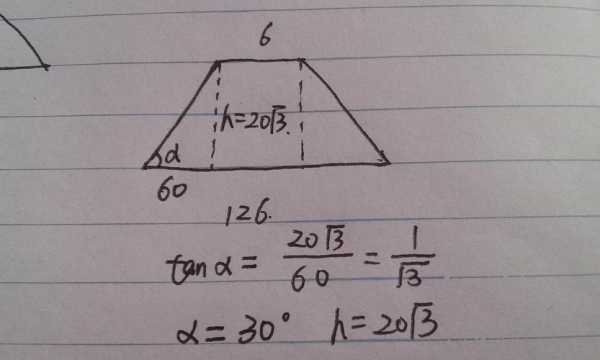 6
h=20√3.
α
60
126.
tan α = 20√3/60 = 1/√3
α = 30° h = 20√3